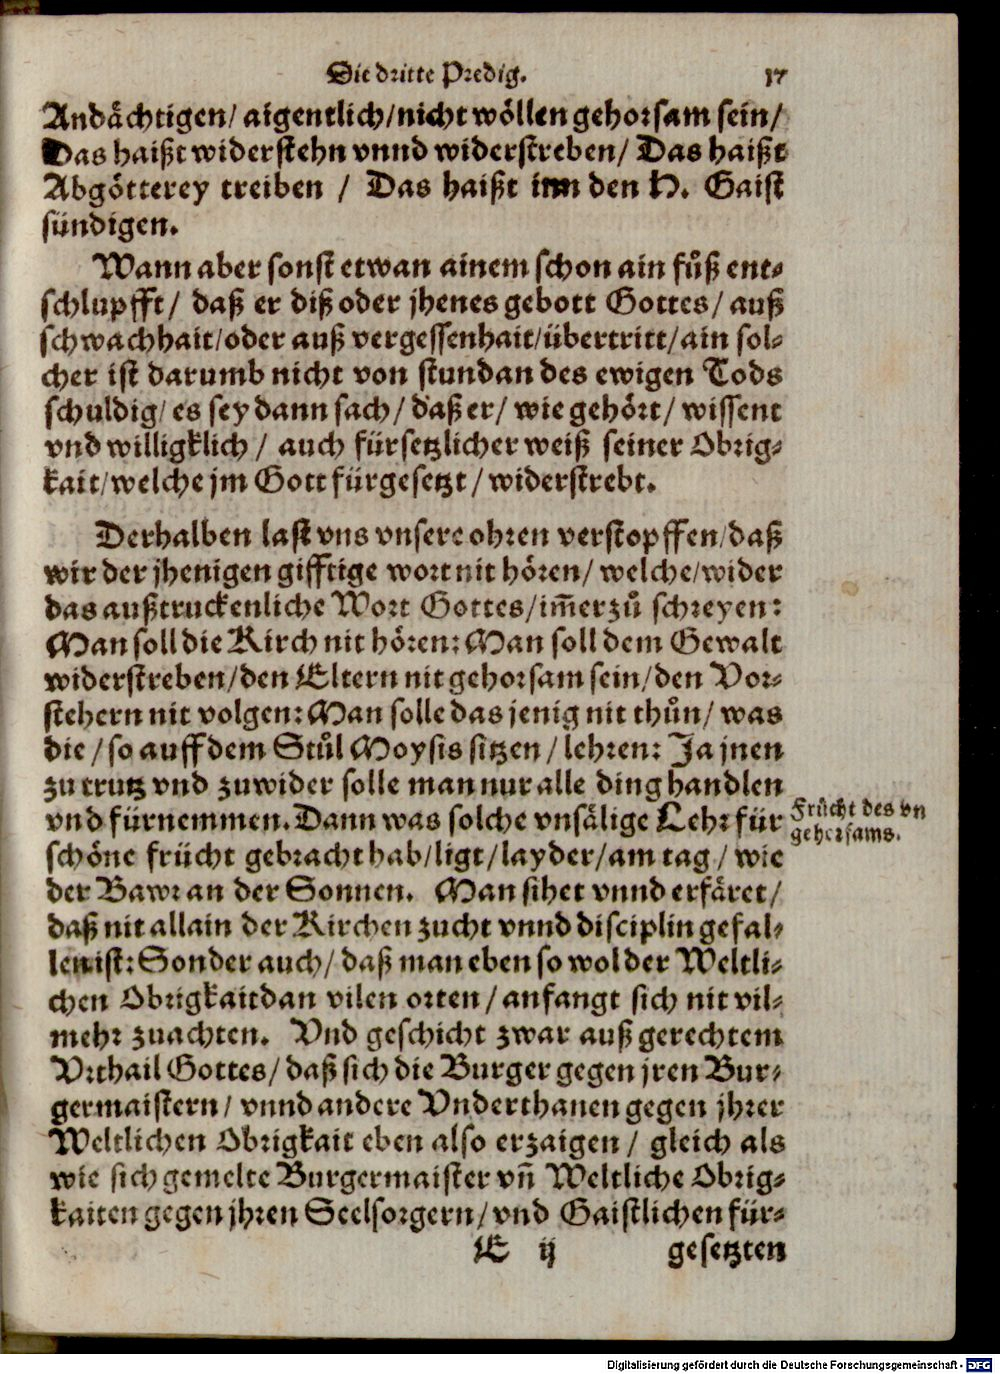 Die dritte Predig. 17
Andächtigen/ aigentlich/nicht wöllen gehorsam sein/
Das haißt widerstehn vnnd widerstreben/ Das haißt
Abgötterey treiben / Das haißt inn den H. Gaist
sündigen.
Wann aber sonst etwan ainem schon ain fůß ent-
schlupfft/ daß er diß oder jhenes gebott Gottes/ auß
schwachhait/oder auß vergessenhait/übertritt/ain sol-
cher ist darumb nicht von stundan des ewigen Tods
schuldig/ es sey dann sach/ daß er/ wie gehört/ wissent
vnd willigklich / auch fürsetzlicher weiß seiner Obrig-
kait/welche jm Gott fürgesetzt / widerstrebt.
Derhalben last vns vnsere ohren verstopffen/daß
wir der jhenigen gifftige wort nit hören/ welche/wider
das außtruckenliche Wort Gottes/im̃erzů schreyen:
Man soll die Kirch nit hören: Man soll dem Gewalt
widerstreben/den Eltern nit gehorsam sein/den Vor-
stehern nit volgen: Man solle das jenig nit thůn/ was
die / so auff dem Stůl Moysis sitzen / lehren: Ja jnen
zu trutz vnd zuwider solle man nur alle ding handlen
vnd fürnemmen. Dann was solche vnsälige Lehr für
Frücht des vn
gehorsams.
schöne frücht gebracht hab/ligt/layder/am tag / wie
der Bawr an der Sonnen. Man sihet vnnd erfäret/
daß nit allain der Kirchen zucht vnnd disciplin gefal-
len ist: Sonder auch/ daß man eben so wol der Weltli-
chen Obrigkait dan vilen orten / anfangt sich nit vil-
mehr zuachten. Vnd geschicht zwar auß gerechtem
Vrthail Gottes/ daß sich die Burger gegen jren Bur-
germaistern/ vnnd andere Vnderthanen gegen jhrer
Weltlichen Obrigkait eben also erzaigen / gleich als
wie sich gemelte Burgermaister vñ Weltliche Obrig-
kaiten gegen jhren Seelsorgern/ vnd Gaistlichen für-
E ij gesetzten
Digitalisierung gefördert durch die Deutsche Forschungsgemeinschaft - DFG